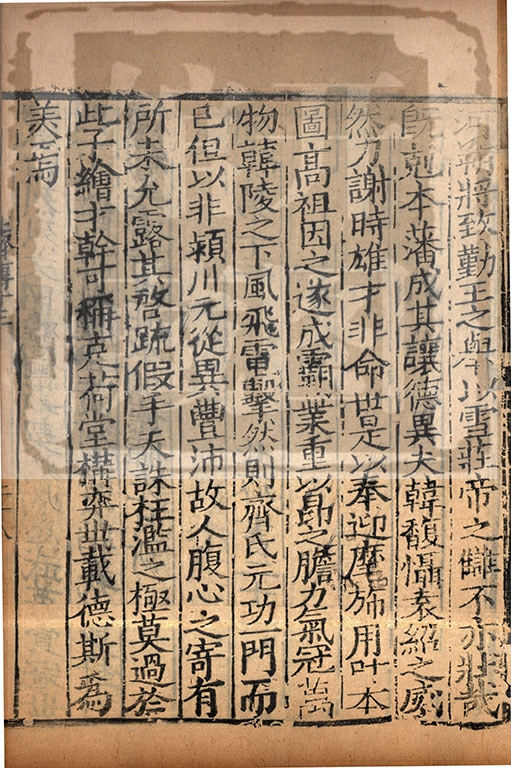 河朔將致勤王之舉以雪莊帝之讎不亦壯哉
既剋本藩成其讓德異夫韓馥懾袁紹之威
然力謝時雄才非命世是以奉迎麾旆用叶本
圖高祖因之遂成霸業重以昻之膽力氣冠萬
物韓陵之下風飛電擊然則齊氏元功一門而
已但以非潁川元從異豐沛故人腹心之寄有
所未允露其啓疏假手天誅枉濫之極莫過於
此子繪才幹可稱克荷堂構弈世載德斯爲
美焉